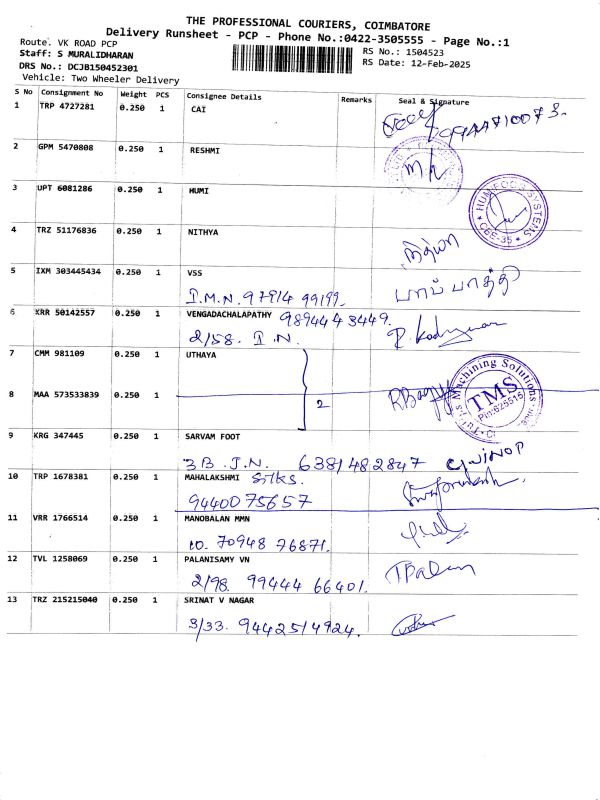 THE PROFESSIONAL COURIERS, COIMBATORE
Delivery Runsheet - PCP - Phone No.:0422-3505555 - Page No.:1
Route. VK ROAD PCP
Staff: S MURALIDHARAN RS No.: 1504523
DRS No.: DCJB150452301 RS Date: 12-Feb-2025
Vehicle: Two Wheeler Delivery
S No Consignment No Weight PCS Consignee Details Remarks Seal & Signature
1 TRP 4727281 0.250 1 CAI
2 GPM 5470808 0.250 1 RESHMI
3 UPT 6081286 0.250 1 HUMI
HUMI FOOD SYSTEMS
CBE-35
4 TRZ 51176836 0.250 1 NITHYA
நித்யா
5 IXM 303445434 0.250 1 VSS
I.M.N. 97914 99199.
6 KRR 50142557 0.250 1 VENGADACHALAPATHY 9894443449.
2/58. I.N.
7 CMM 981109 0.250 1 UTHAYA
Machining Solutions
TMS
8 MAA 573533839 0.250 1
2
9 KRG 347445 0.250 1 SARVAM FOOT
3B J.N. 6381482847
10 TRP 1678381 0.250 1 MAHALAKSHMI Silks.
9440075657
11 VRR 1766514 0.250 1 MANOBALAN MMN
10. 70948 76871.
12 TVL 1258069 0.250 1 PALANISAMY VN
2/98. 99444 66401.
13 TRZ 215215040 0.250 1 SRINAT V NAGAR
3/33. 9442514924.